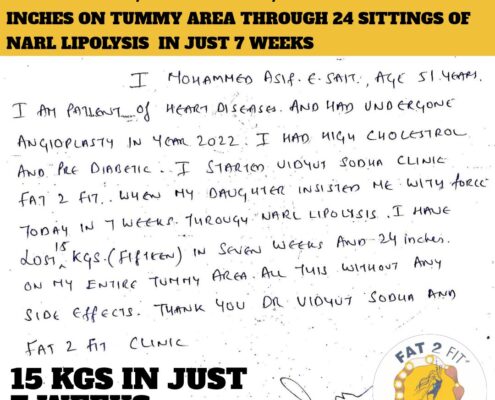 INCHES ON TUMMY AREA THROUGH 24 SITTINGS OF
NARL LIPOLYSIS IN JUST 7 WEEKS
I MOHAMMED ASIF. E. SAIT., AGE 51 YEARS.
I AM PATIENT of HEART DISEASES. AND HAD UNDERGONE
ANGIOPLASTY IN YEAR 2022. I HAD HIGH CHOLESTROL
AND PRE DIABETIC. I STARTED VIDYUT SODHA CLINIC
FAT 2 FIT. WHEN MY DAUGHTER INSISTED ME WITH force
TODAY IN 7 WEEKS. THROUGH NARL LIPOLYSIS. I HAVE
LOST 15 KGS. (FIFTEEN) IN SEVEN WEEKS AND 24 inches.
ON MY ENTIRE TUMMY AREA. ALL THIS WITHOUT ANY
SIDE EFFECTS. THANK YOU DR VIDYUT SODHA AND
FAT 2 FIT CLINIC
15 KGS IN JUST
7 WEEKS
FAT 2 FIT